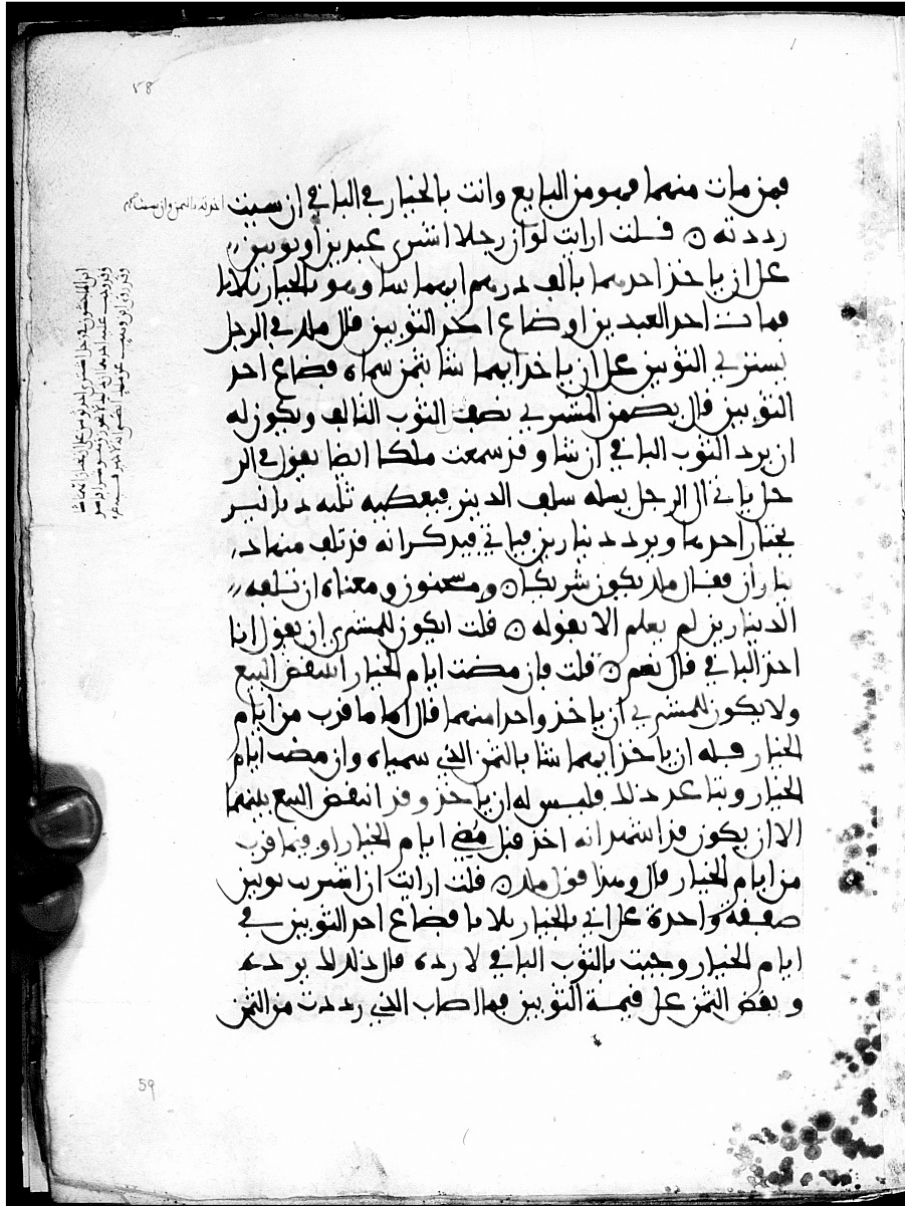 فمن مات منهما فهو من البايع وانت بالخيار في الباقي ان شيت
اخذته بالثمن وان شيت
رددته ه قلت ارايت لو ان رجلا اشترى عبدين او ثوبين
على ان ياخذ احدهما بالف درهم ايهما شا وهو بالخيار ثلاثا
فمات احد العبدين او ضاع احد الثوبين قال ملك في الرجل
يشتري الثوبين على ان ياخذ ايهما شا بثمن سماه فضاع احد
الثوبين قال يضمن المشتري نصف الثوب التالف ويكون له
ان يرد الثوب الباقي ان شا وقد سمعت ملكا ايضا يقول في الر
جل ياتي الى الرجل يسله سلف الدينر فيعطيه ثلثه دنانير
يختار احدها ويرد دينارين فياتي فيذكر انه قد تلف منها د
يناران فقال ملك يكون شريكا ه سحنون ومعناه ان تلفه
الدينارين لم يعلم الا بقوله ه قلت ايكون للمشتري ان يقول انا
اخذ الباقي قال نعم ه قلت فان مضت ايام الخيار انتقض البيع
ولا يكون للمشتري ان ياخذ واحدا منهما قال اما ما قرب من ايام
الخيار فله ان ياخذ ايهما شا بالثمن الذي سمياه وان مضت ايام
الخيار وتباعد ذلك فليس له ان ياخذ وقد انتقض البيع بينهما
الا ان يكون قد اشهد انه اخذ قبل مضي ايام الخيار او فيما قرب
من ايام الخيار قال وهذا قول ملك ه قلت ارايت ان اشتريت ثوبين
صفقة واحدة على اني بالخيار ثلاثا فضاع احد الثوبين في
ايام الخيار وجيت بالثوب الباقي لارده قال ذلك لك يرده
ويفض الثمن على قيمة الثوبين فما اصاب الذي رددت من الثمن
58
59